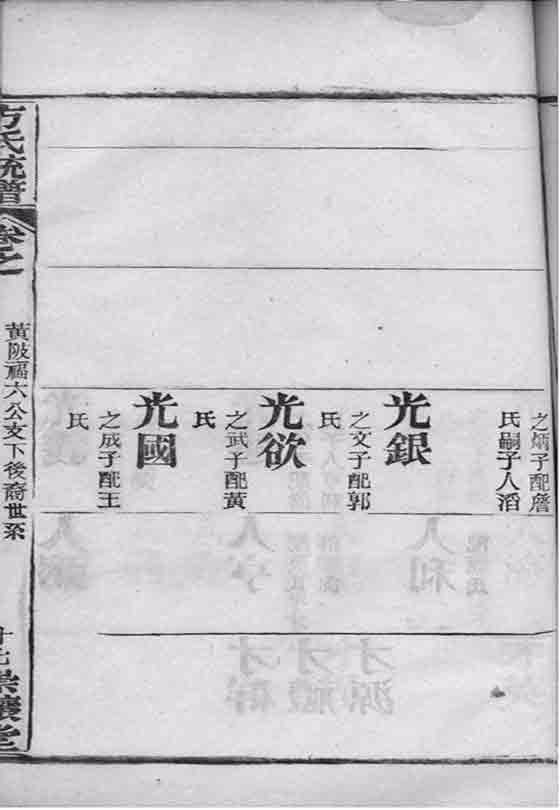 之炳子配詹
氏嗣子人滔
光銀
之文子配郭
氏
光欲
之武子配黃
氏
光國
之成子配王
氏
方氏統譜
卷之
黃陂福六公支下後裔世系